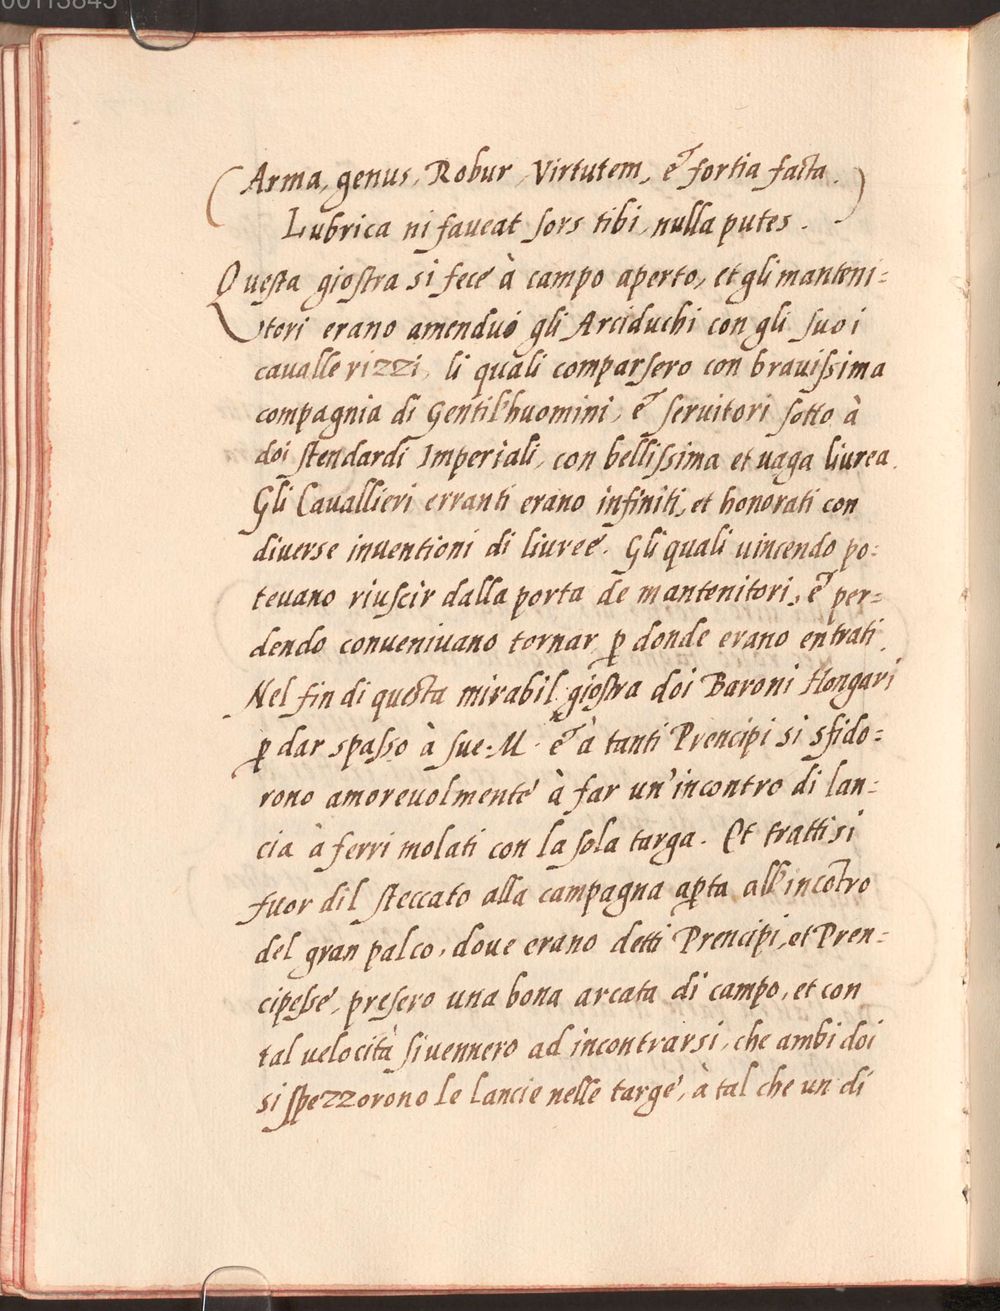 00113845
(Arma, genus, Robur, Virtutem, et fortia facta.
Lubrica ni faveat sors tibi, nulla putes.)
Questa giostra si fece à campo aperto, et gli manteni=
tori erano amenduo gli Arciduchi con gli suoi
cavallerizzi, li quali comparsero con bravissima
compagnia di Gentil'huomini, et servitori sotto à
doi stendardi Imperiali, con bellissima et vaga liurea.
Gli Cavallieri erranti erano infiniti, et honorati con
diverse inventioni di liuree. Gli quali vincendo po=
tevano riuscir dalla porta de mantenitori, et per=
dendo convenivano tornar p donde erano entrati.
Nel fin di questa mirabil giostra doi Baroni Hongari
p dar spasso à sue. M. et à tanti Prencipi si sfido=
rono amorevolmente à far un'incontro di lan=
cia à ferri molati con la sola targa. Et trattisi
fuor dil steccato alla campagna apta all'incotro
del gran palco, dove erano detti Prencipi, et Pren=
cipesse, presero una bona arcata di campo, et con
tal velocità si vennero ad incontrarsi, che ambi doi
si spezzorono le lancie nelle targe, à tal che un di